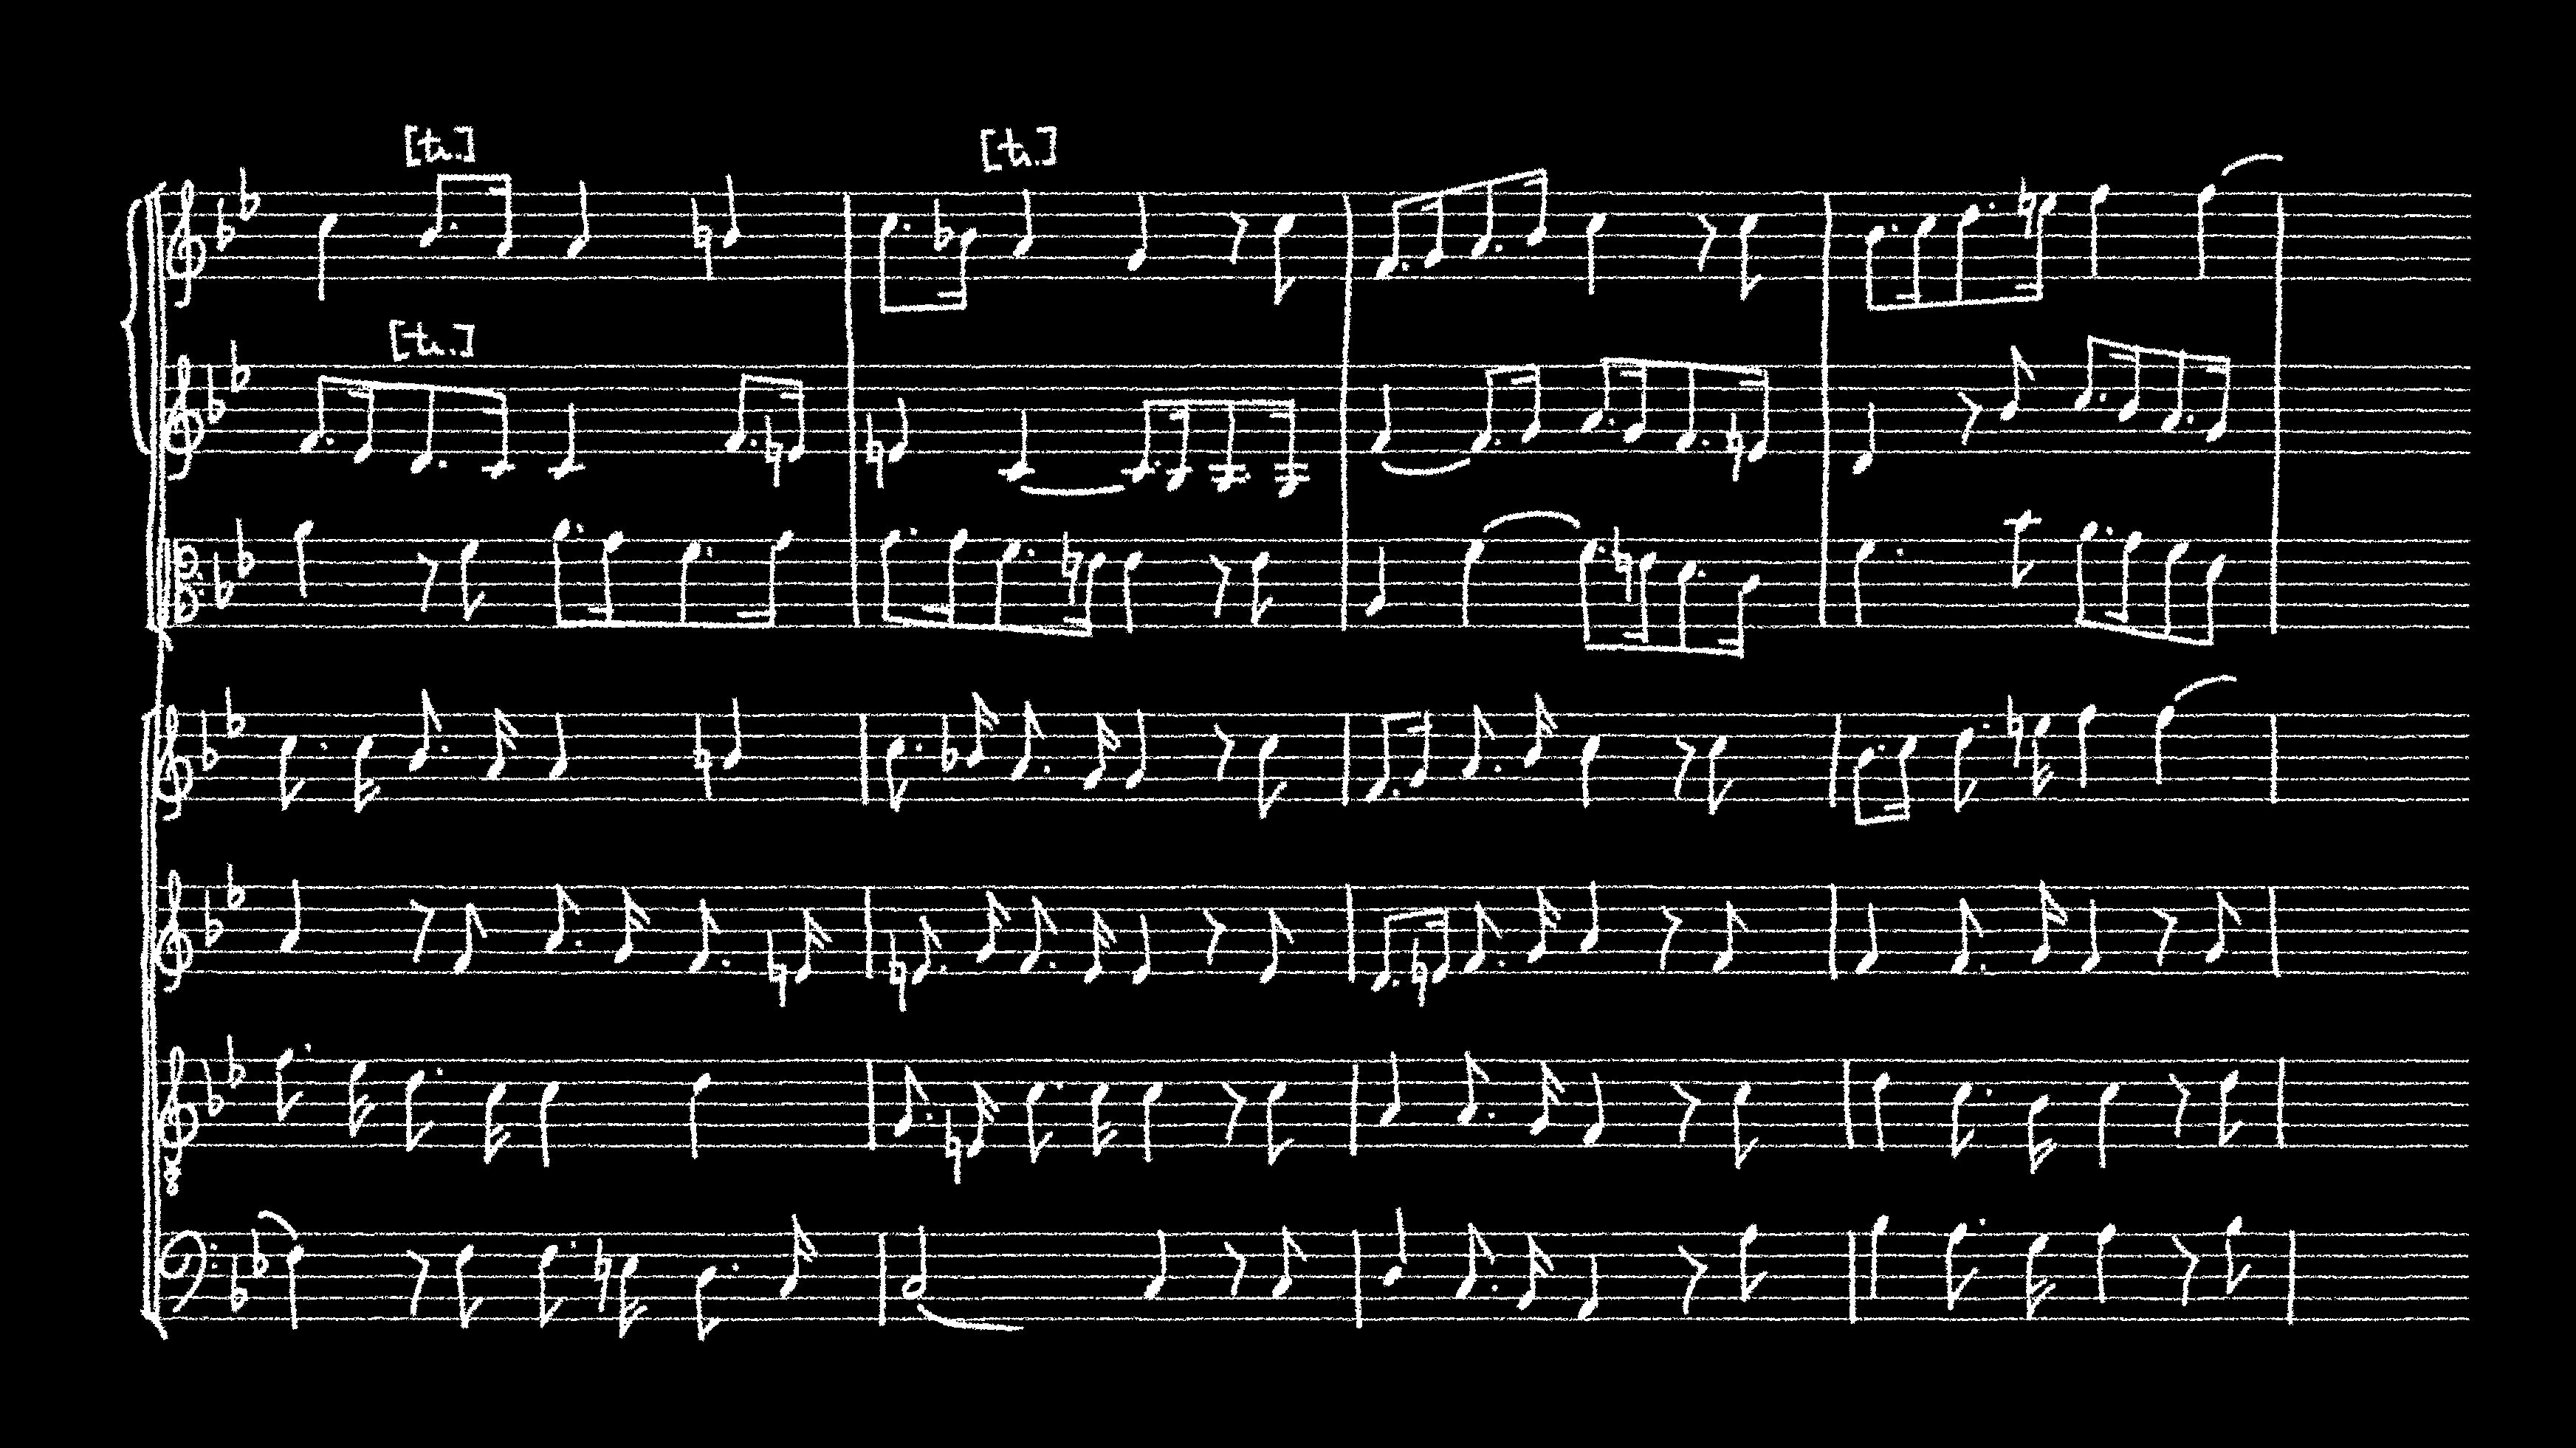 [tr.] [tr.]
[tr.]